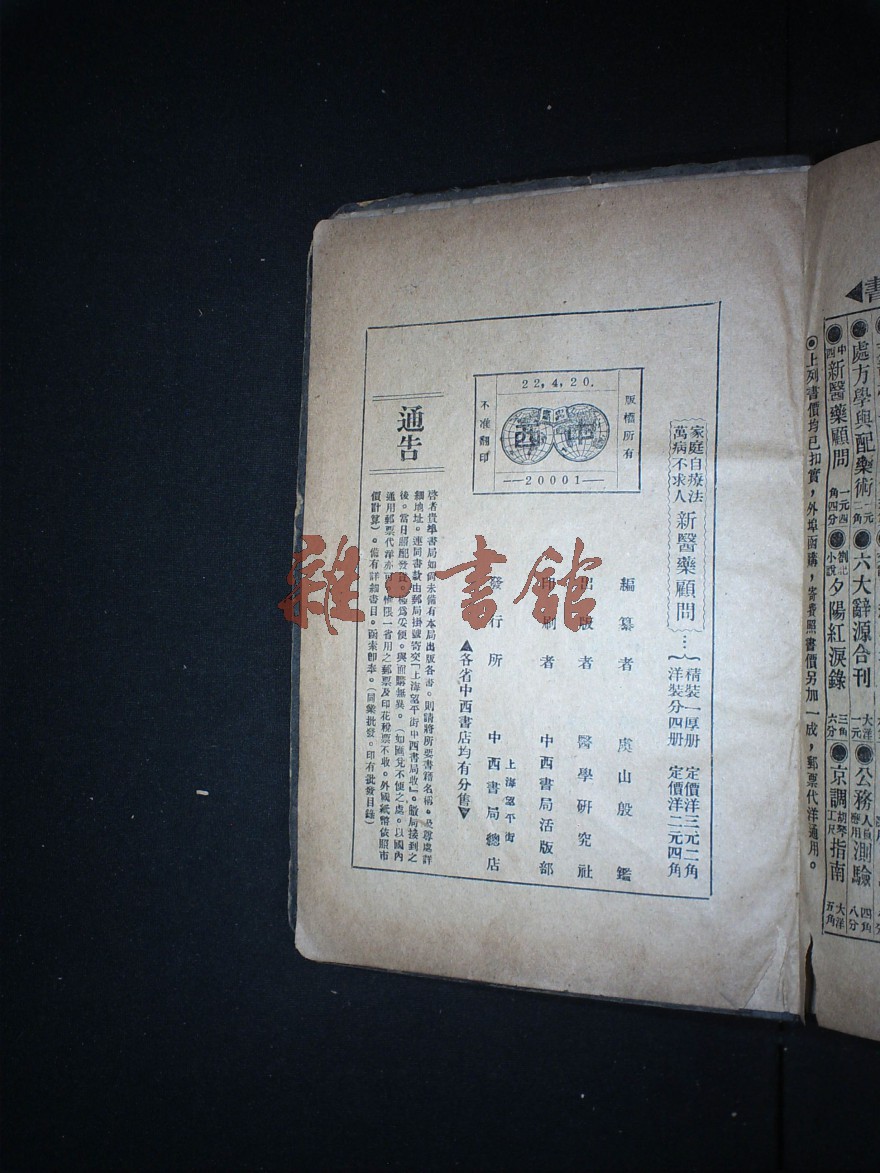 家庭自療法
萬病不求人
新醫藥顧問
精裝一厚册 定價洋三元二角
洋裝分四册 定價洋二元四角
編纂者 虞山殷鑑
出版者 醫學研究社
印刷者 中西書局活版部
發行所 上海望平街 中西書局總店
▲各省中西書店均有分售▼
版權所有
22,4,20.
中西
20001
不准翻印
通告
啓者貴埠書局如尚未備有本局出版各書。則請將所要書籍名稱。及尊處詳
細地址。連同書款由郵局掛號寄交「上海望平街中西書局收」。敝局接到之
後。當日照配發
妥便。與面購無異。(如匯兌不便之處。以國內
通用郵票代洋亦可。惟限一省用之郵票及印花稅票不收。外國紙幣依照市
價計算)。備有詳細書目。函索即奉。(開業批發。印有批發目錄)
雜·書館
書▲
處方學與配藥術 一元二角
六大辭源合刊 大洋一元
公務人員應用測驗 四角八分
中西新醫藥顧問 一元四角四分
小說 夕陽紅淚錄 三角六分
京調胡琴工尺指南 大洋五角
◎上列書價均已扣實,外埠函購,寄費照書價另加一成,郵票代洋通用。